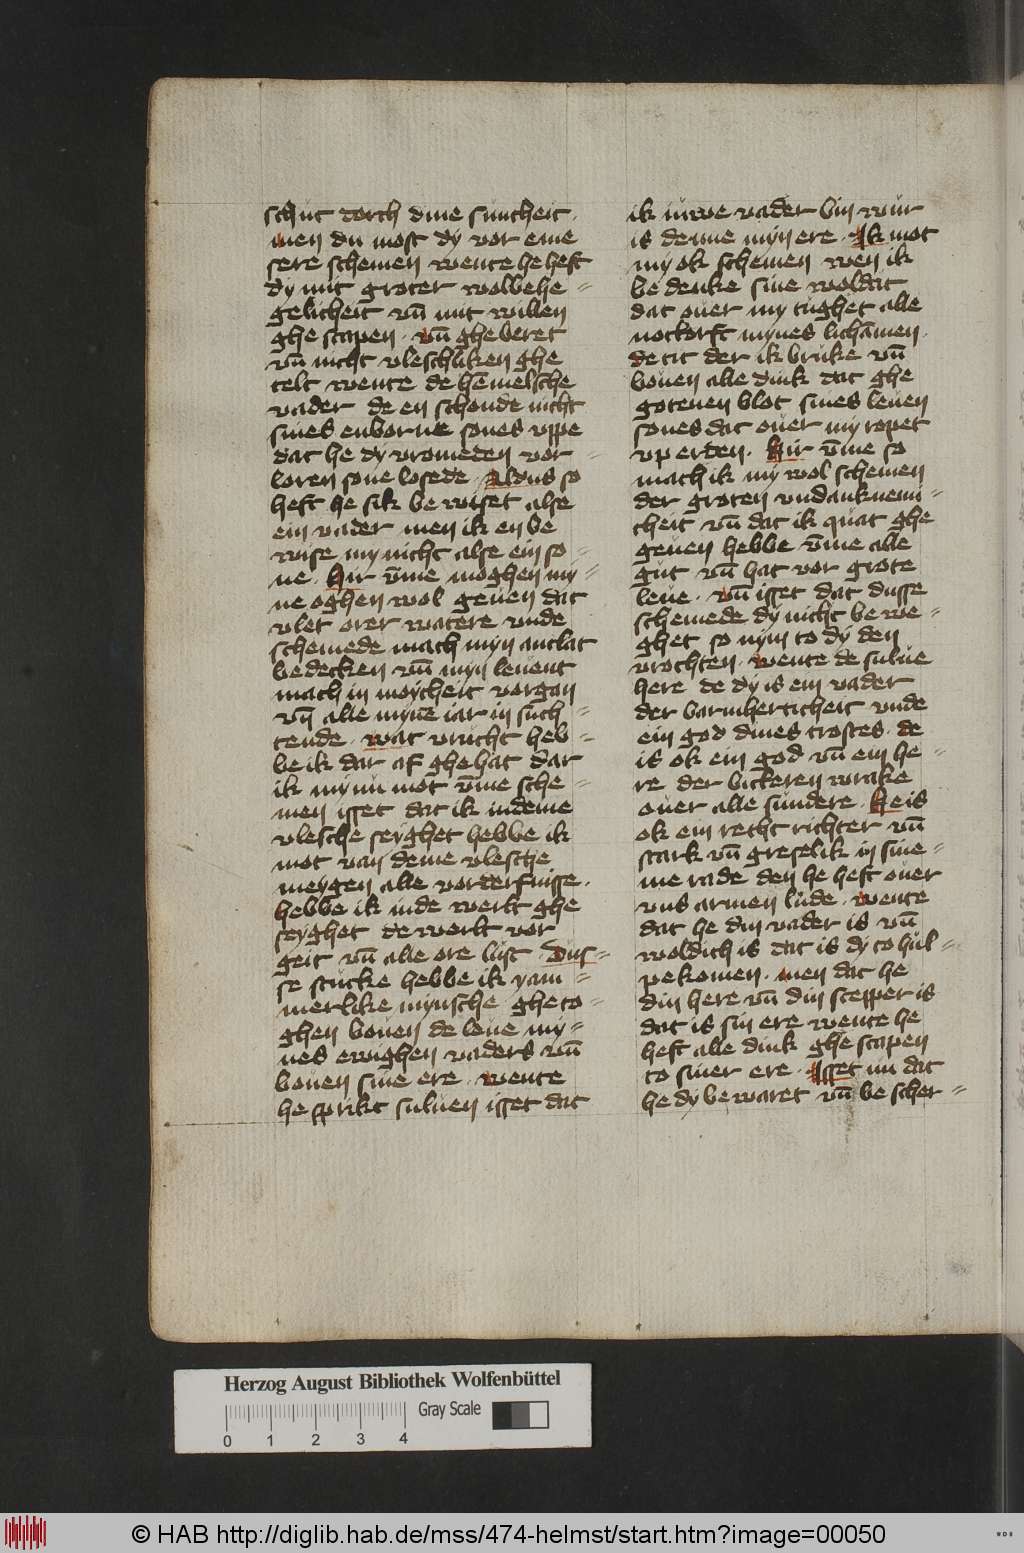 schut dorch dine suncheit.
men du most dy vor eme
sere schemen wente he heft
dy mit groter wolbehe=
gelicheit vn̄ mit willen
ghe scapen. vn̄ gheberet
vn̄ nicht vleschliken ghe
telt wente de hēmelsche
vader de en schonde nicht
sines enborne sones vppe
dat he dy vromeden vor=
loren sone losede. Aldus so
heft he sik bewiset alse
ein vader men ik en be
wise my nicht alse ein so=
ne. Hir v̄me moghen my=
ne oghen wol geuen dat
vlet orer watere vnde
schemede mach myn antlat
bedecken vn̄ myn leuent
mach in moycheit vorgan
vn̄ alle mynē iar in such=
tende. wat vrucht heb=
be ik dar af ghehat dar
ik my nu mot v̄me sche=
men isset dat ik in deme
vlesche seyghet hebbe ik
mot van deme vlesche
meygen alle vorderfnisse.
hebbe ik in de werlt ghe
seyghet de werlt vor
geit vn̄ alle ore lust. Dus=
se stucke hebbe ik yam=
merlike mynsche gheto=
ghen bouen de leue my=
nes ewighen vaders vn̄
bouen sine ere. wente
he sprikt suluen isset dat
ik iuwe vader bin wur
is denne myn ere. Ik mot
my ok schemen wen ik
be denke sine woldat
dat ouer my tughet alle
nottorft mynes lichāmen.
de tit der ik bruke vn̄
bouen alle dink dat ghe
goteuen blot sines leuen
sones dat ouer my ropet
vp erden. Hir v̄me so
mach ik my wol schemen
der groten vndanknemi=
cheit vn̄ dat ik quat ghe
geuen hebbe v̄me alle
gut vn̄ hat vor grote
leue. vn̄ isset dat dusse
schemede dy nicht be we=
ghet so nym to dy den
vrochten. wente de sulue
here de dy is ein vader
der barmherticheit vnde
ein god dines trostes. de
is ok ein god vn̄ ein he=
re der bitteren wrake
ouer alle sundere. He is
ok ein recht richter vn̄
stark vn̄ greselik in sine=
me rade den he heft ouer
vns armen lude. wente
dat he din vader is vn̄
woldich is dat is dy to hul=
pe komen. men dat he
din here vn̄ din scepper is
dat is sin ere wente he
heft alle dink ghe scapen
to siner ere. Isset nu dat
he dy bewaret vn̄ be scher=
Herzog August Bibliothek Wolfenbüttel
Gray Scale
0 1 2 3 4
© HAB http://diglib.hab.de/mss/474-helmst/start.htm?image=00050
WDB